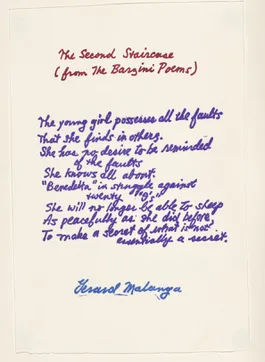 The Second Staircase
(from The Barzini Poems)
The young girl possesses all the faults
That she finds in others.
She has no desire to be reminded
of the faults
She knows all about.
"Benedetta" in struggle against
twenty "9's"
She will no longer be able to sleep
As peacefully as she did before,
To make a secret of what is "not"
essentially a secret.
Gerard Malanga